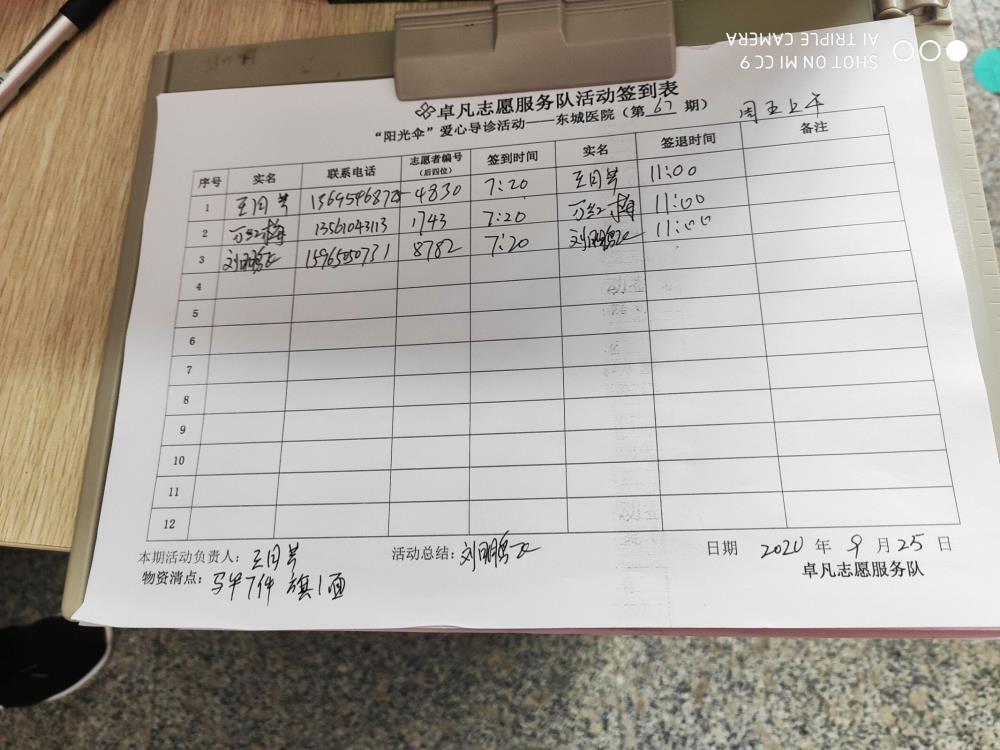 SHOT ON MI CC9
AI TRIPLE CAMERA
卓凡志愿服务队活动签到表
“阳光伞”爱心导诊活动——东城医院（第 67 期） 周五上午
序号 实名 联系电话 志愿者编号（后四位） 签到时间 实名 签退时间 备注
1 4830 7:20 11:00
2 万红梅 13561043113 1743 7:20 万红梅 11:00
3 刘鹏飞 15965050731 8782 7:20 刘鹏飞 11:00
4
5
6
7
8
9
10
11
12
本期活动负责人： 活动总结：刘鹏飞 日期 2020 年 9 月 25 日
物资清点：马甲7件 旗1面 卓凡志愿服务队